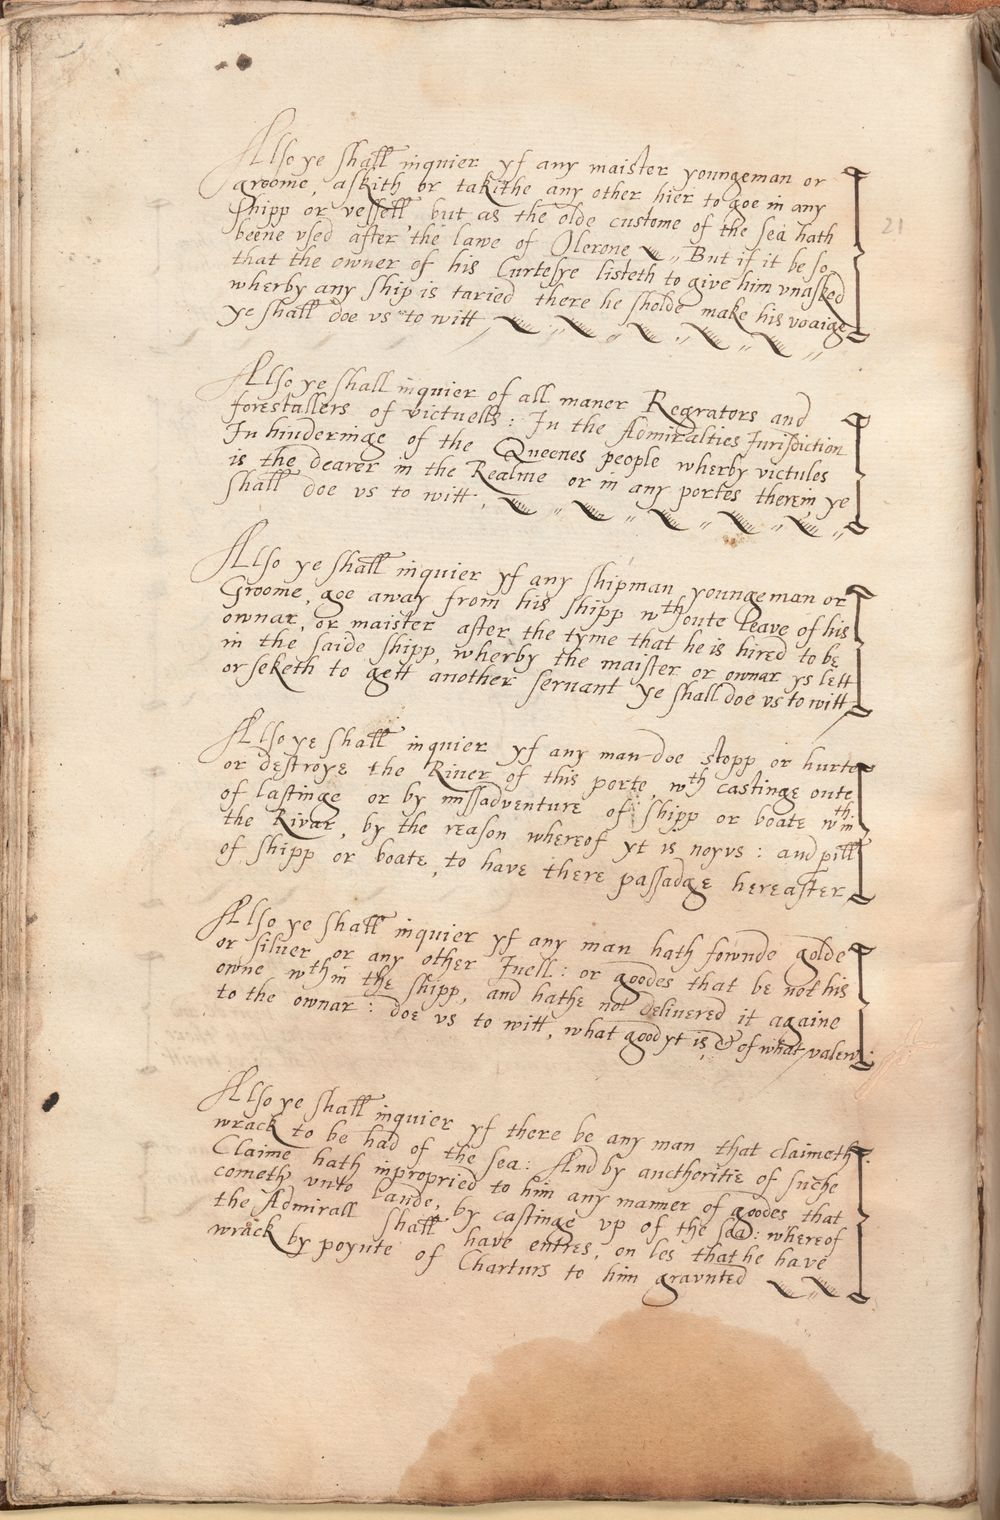 Also ye shall inquier yf any maister youngeman or
groome, askith or takithe any other hier to goe in any
shipp or vessell but as the olde custome of the sea hath
beene vsed after the lawe of Olerone But if it be so
that the owner of his Curtesye listeth to give him vnasked
wherby any ship is taried there he sholde make his voaige
ye shall doe vs to witt
21
Also ye shall inquier of all maner Regrators and
forestallers of victuells: In the Admiralties Jurisdiction
In hinderinge of the Queenes people wherby victules
is the dearer in the Realme or in any portes therein ye
shall doe vs to witt
Also ye shall inquier yf any shipman youngeman or
Groome, goe away from his shipp wthoute leave of his
ownar, or maister after the tyme that he is hired to be
in the saide shipp, wherby the maister or ownar ys lett
or seketh to gett another servant ye shall doe vs to witt
Also ye shall inquier yf any man doe stopp or hurte
or destroye the River of this porte, wth castinge oute
of lastinge or by missadventure of shipp or boate wthin
the Rivar, by the reason whereof yt is noyus: and pill
of shipp or boate, to have there passadge hereafter
Also ye shall inquier yf any man hath fownde golde
or silver or any other Juell: or goodes that be not his
owne wthin the shipp, and hathe not delivered it againe
to the ownar: doe vs to witt, what good yt is & of what valew:
Also ye shall inquier yf there be any man that claimeth
wrack to be had of the sea: And by aucthoritie of suche
Claime hath inpropried to him any maner of goodes that
cometh vnto lande, by castinge vp of the sea: whereof
the Admirall shall have entres, on les that he have
wrack by poynte of Charturs to him gravnted